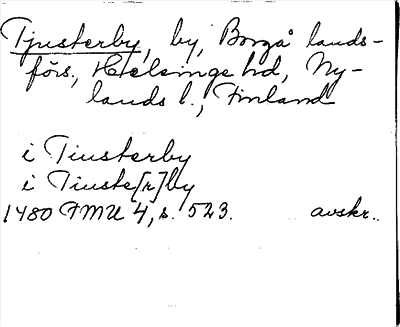 Tjusterby, by, Borgå lands-
förs., Helsinge hd, Ny-
lands l., Finland
i Tiusterby
i Tiuste[r]by
1480 FMU 4, s. 523. avskr.